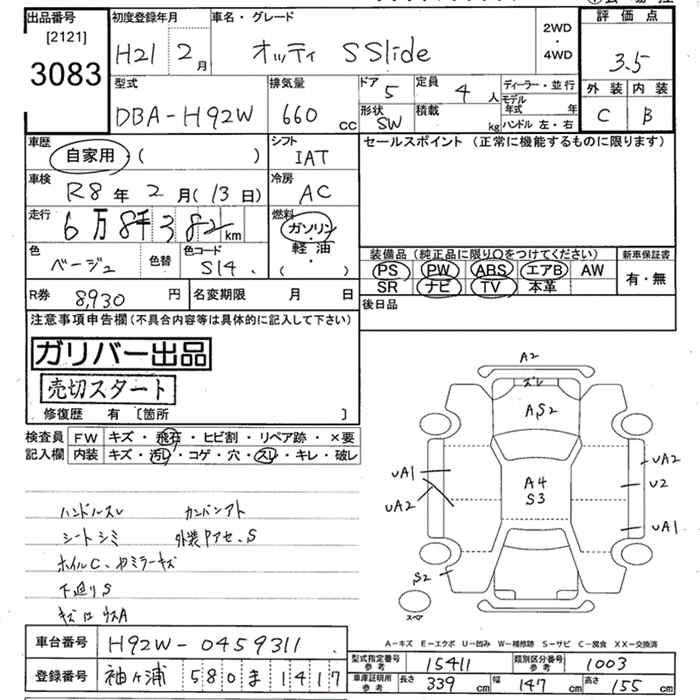 出品番号 初度登録年月 車名・グレード 評価点
[2121] H21 2月 オッティ S Slide 2WD・4WD 3.5
3083 型式 排気量 ドア 5 定員 4人 ディーラー・並行 外装 内装
DBA-H92W 660cc 形状 SW 積載 kg モデル年式 年 C B
ハンドル 左・右
車歴 自家用・( ) シフト IAT セールスポイント (正常に機能するものに限ります)
車検 R8年2月(13日) 冷房 AC
走行 6万8千382km 燃料 ガソリン・軽油・( )
色 ベージュ 色替 色コード S14. 装備品 (純正品に限り○をつけてください) 新車保証書
PS PW ABS エアB AW 有・無
SR ナビ TV 本革
R券 8,930円 名変期限 月 日 後日品
注意事項申告欄(不具合内容等は具体的に記入して下さい)
ガリバー出品
売切スタート
修復歴 有 [箇所 ]
検査員 FW キズ・飛石・ヒビ割・リペア跡・×要
記入欄 内装 キズ・汚レ・コゲ・穴・スレ・キレ・破レ
A2
ズレ
A,S2
UA1 A4 UA2
UA2 S3 U2
UA1
S2
スペア
ハンドルスレ
シートシミ 外装Pアセ.S
ホイルC.ドアミラーキズ
下廻りS
A-キズ E-エクボ U-凹み W-補修跡 S-サビ C-腐食 XX-交換済
車台番号 H92W-0459311
登録番号 袖ヶ浦 580 ま 1417
型式指定番号 参考 15411 類別区分番号 参考 1003
車庫証明用 参考 長さ 339cm 幅 147cm 高さ 155cm